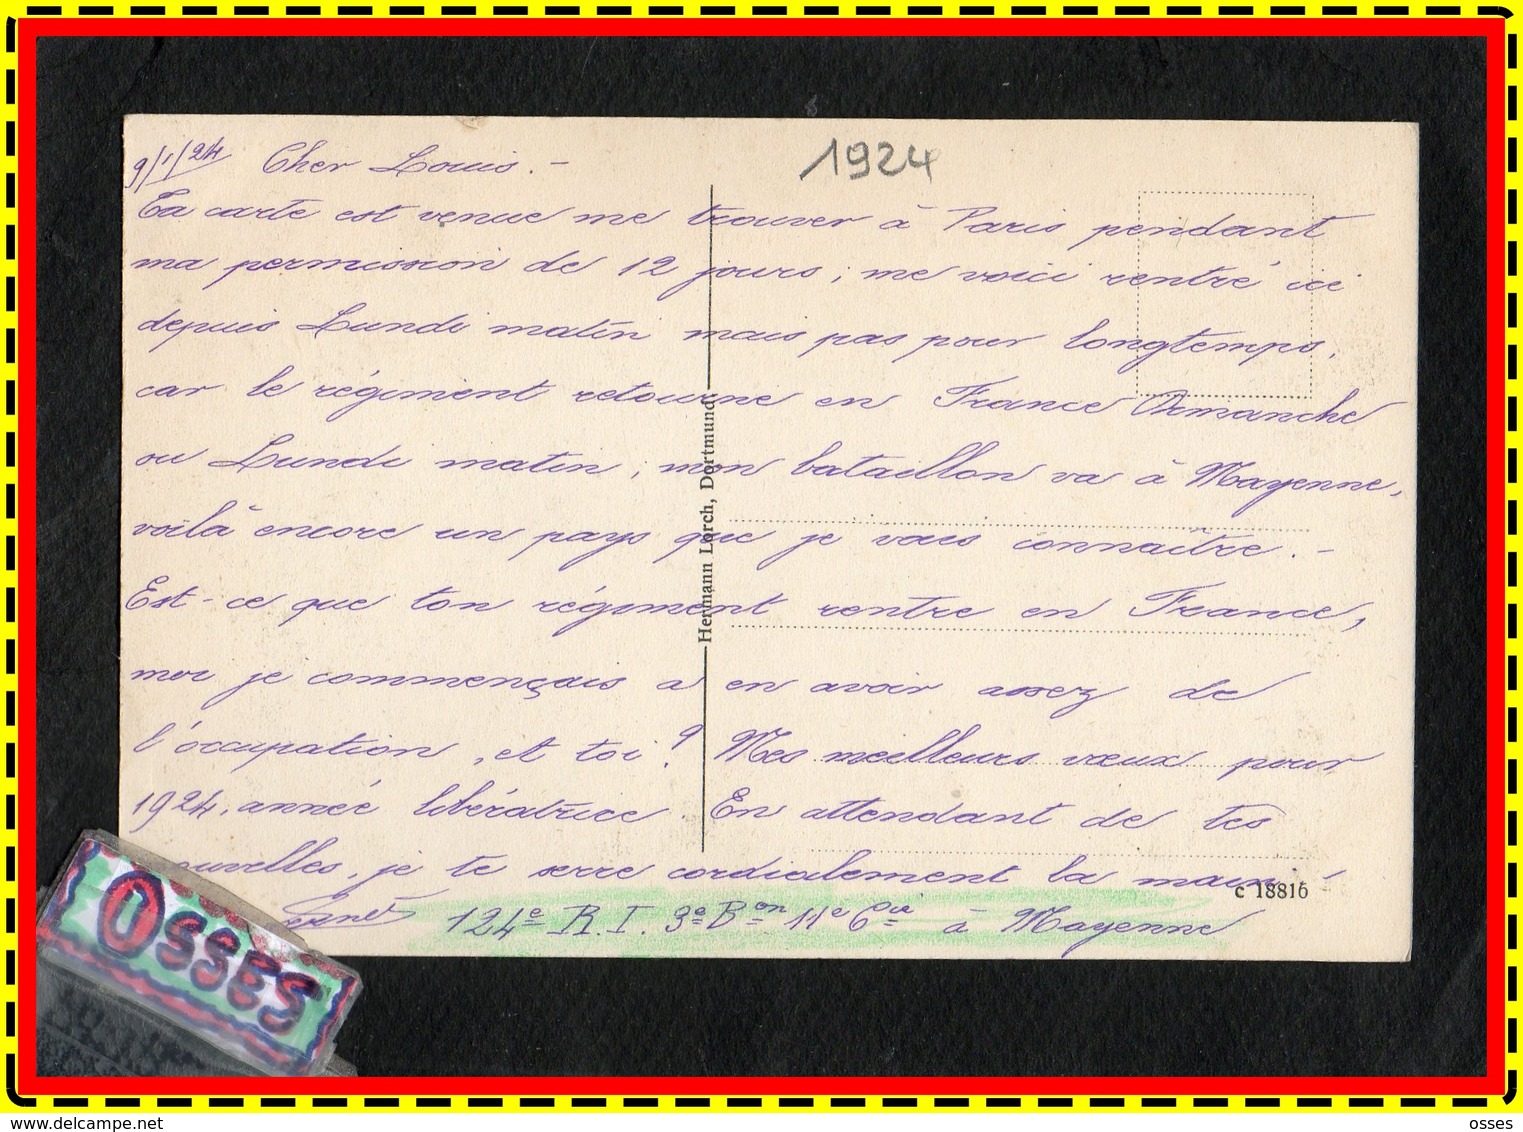 1924
9/1/24 Cher Louis. –
Ta carte est venue me trouver à Paris pendant
ma permission de 12 jours ; me voici rentré ici
depuis Lundi matin mais pas pour longtemps,
car le régiment retourne en France Dimanche
ou Lundi matin ; mon bataillon va à Mayenne,
voilà encore un pays que je vais connaître. –
Est-ce que ton régiment rentre en France,
moi je commençais à en avoir assez de
l'occupation, et toi ? Mes meilleurs vœux pour
1924, année libératrice. En attendant de tes
nouvelles, je te serre cordialement la main
124e R.I. 3e Bon 11e Cie à Mayenne
Hermann Lorch, Dortmund.
c 18816
Osses
www.delcampe.net
osses